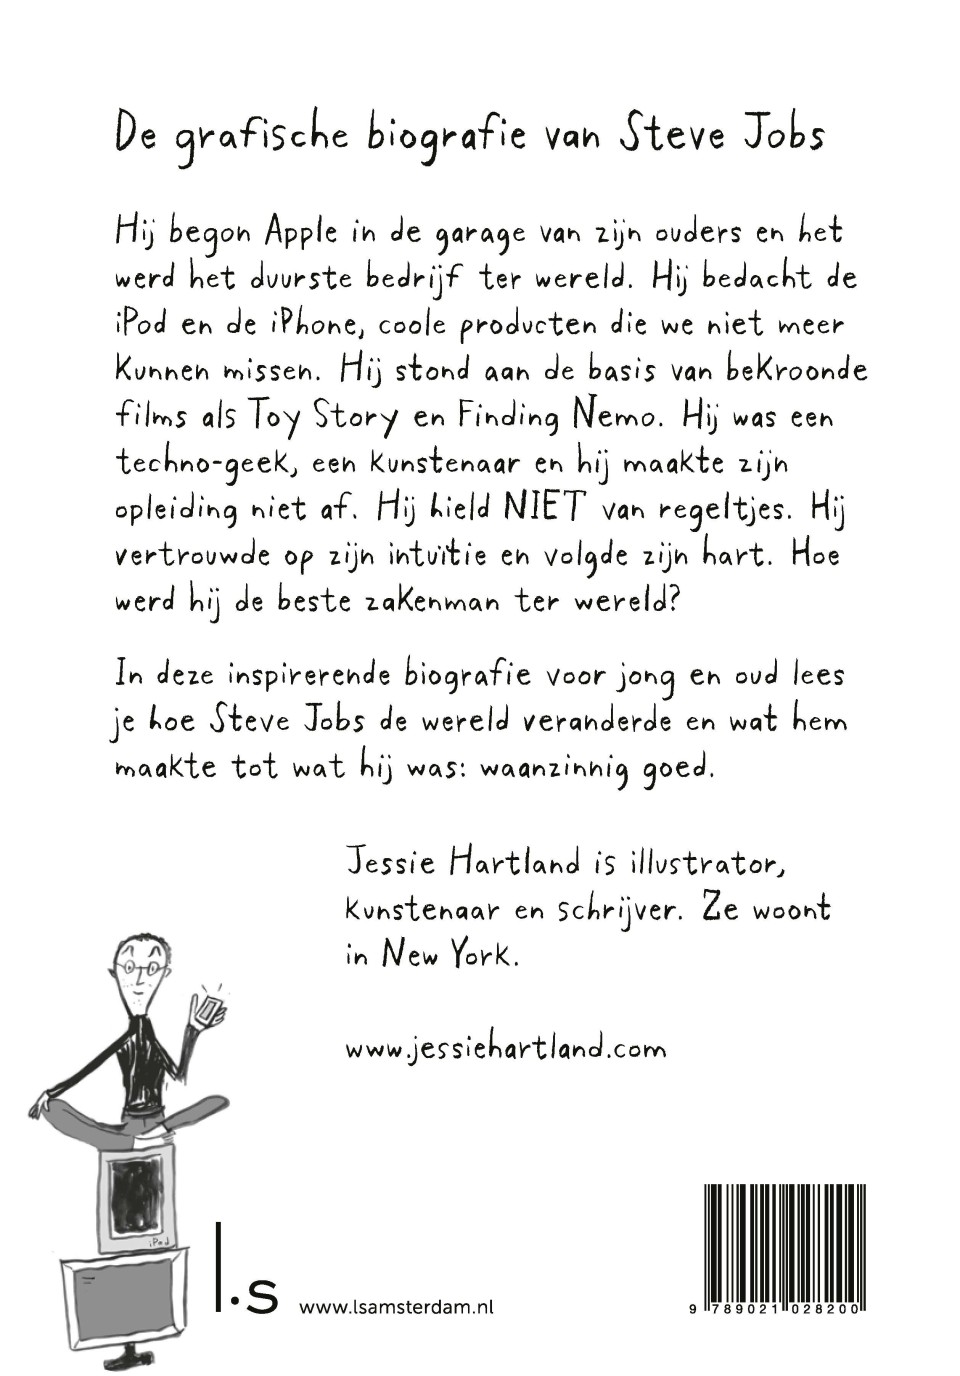 De grafische biografie van Steve Jobs
Hij begon Apple in de garage van zijn ouders en het
werd het duurste bedrijf ter wereld. Hij bedacht de
iPod en de iPhone, coole producten die we niet meer
kunnen missen. Hij stond aan de basis van bekroonde
films als Toy Story en Finding Nemo. Hij was een
techno-geek, een kunstenaar en hij maakte zijn
opleiding niet af. Hij hield NIET van regeltjes. Hij
vertrouwde op zijn intuïtie en volgde zijn hart. Hoe
werd hij de beste zakenman ter wereld?
In deze inspirerende biografie voor jong en oud lees
je hoe Steve Jobs de wereld veranderde en wat hem
maakte tot wat hij was: waanzinnig goed.
Jessie Hartland is illustrator,
kunstenaar en schrijver. Ze woont
in New York.
www.jessiehartland.com
iPad
l.s www.lsamsterdam.nl
9 789021 028200